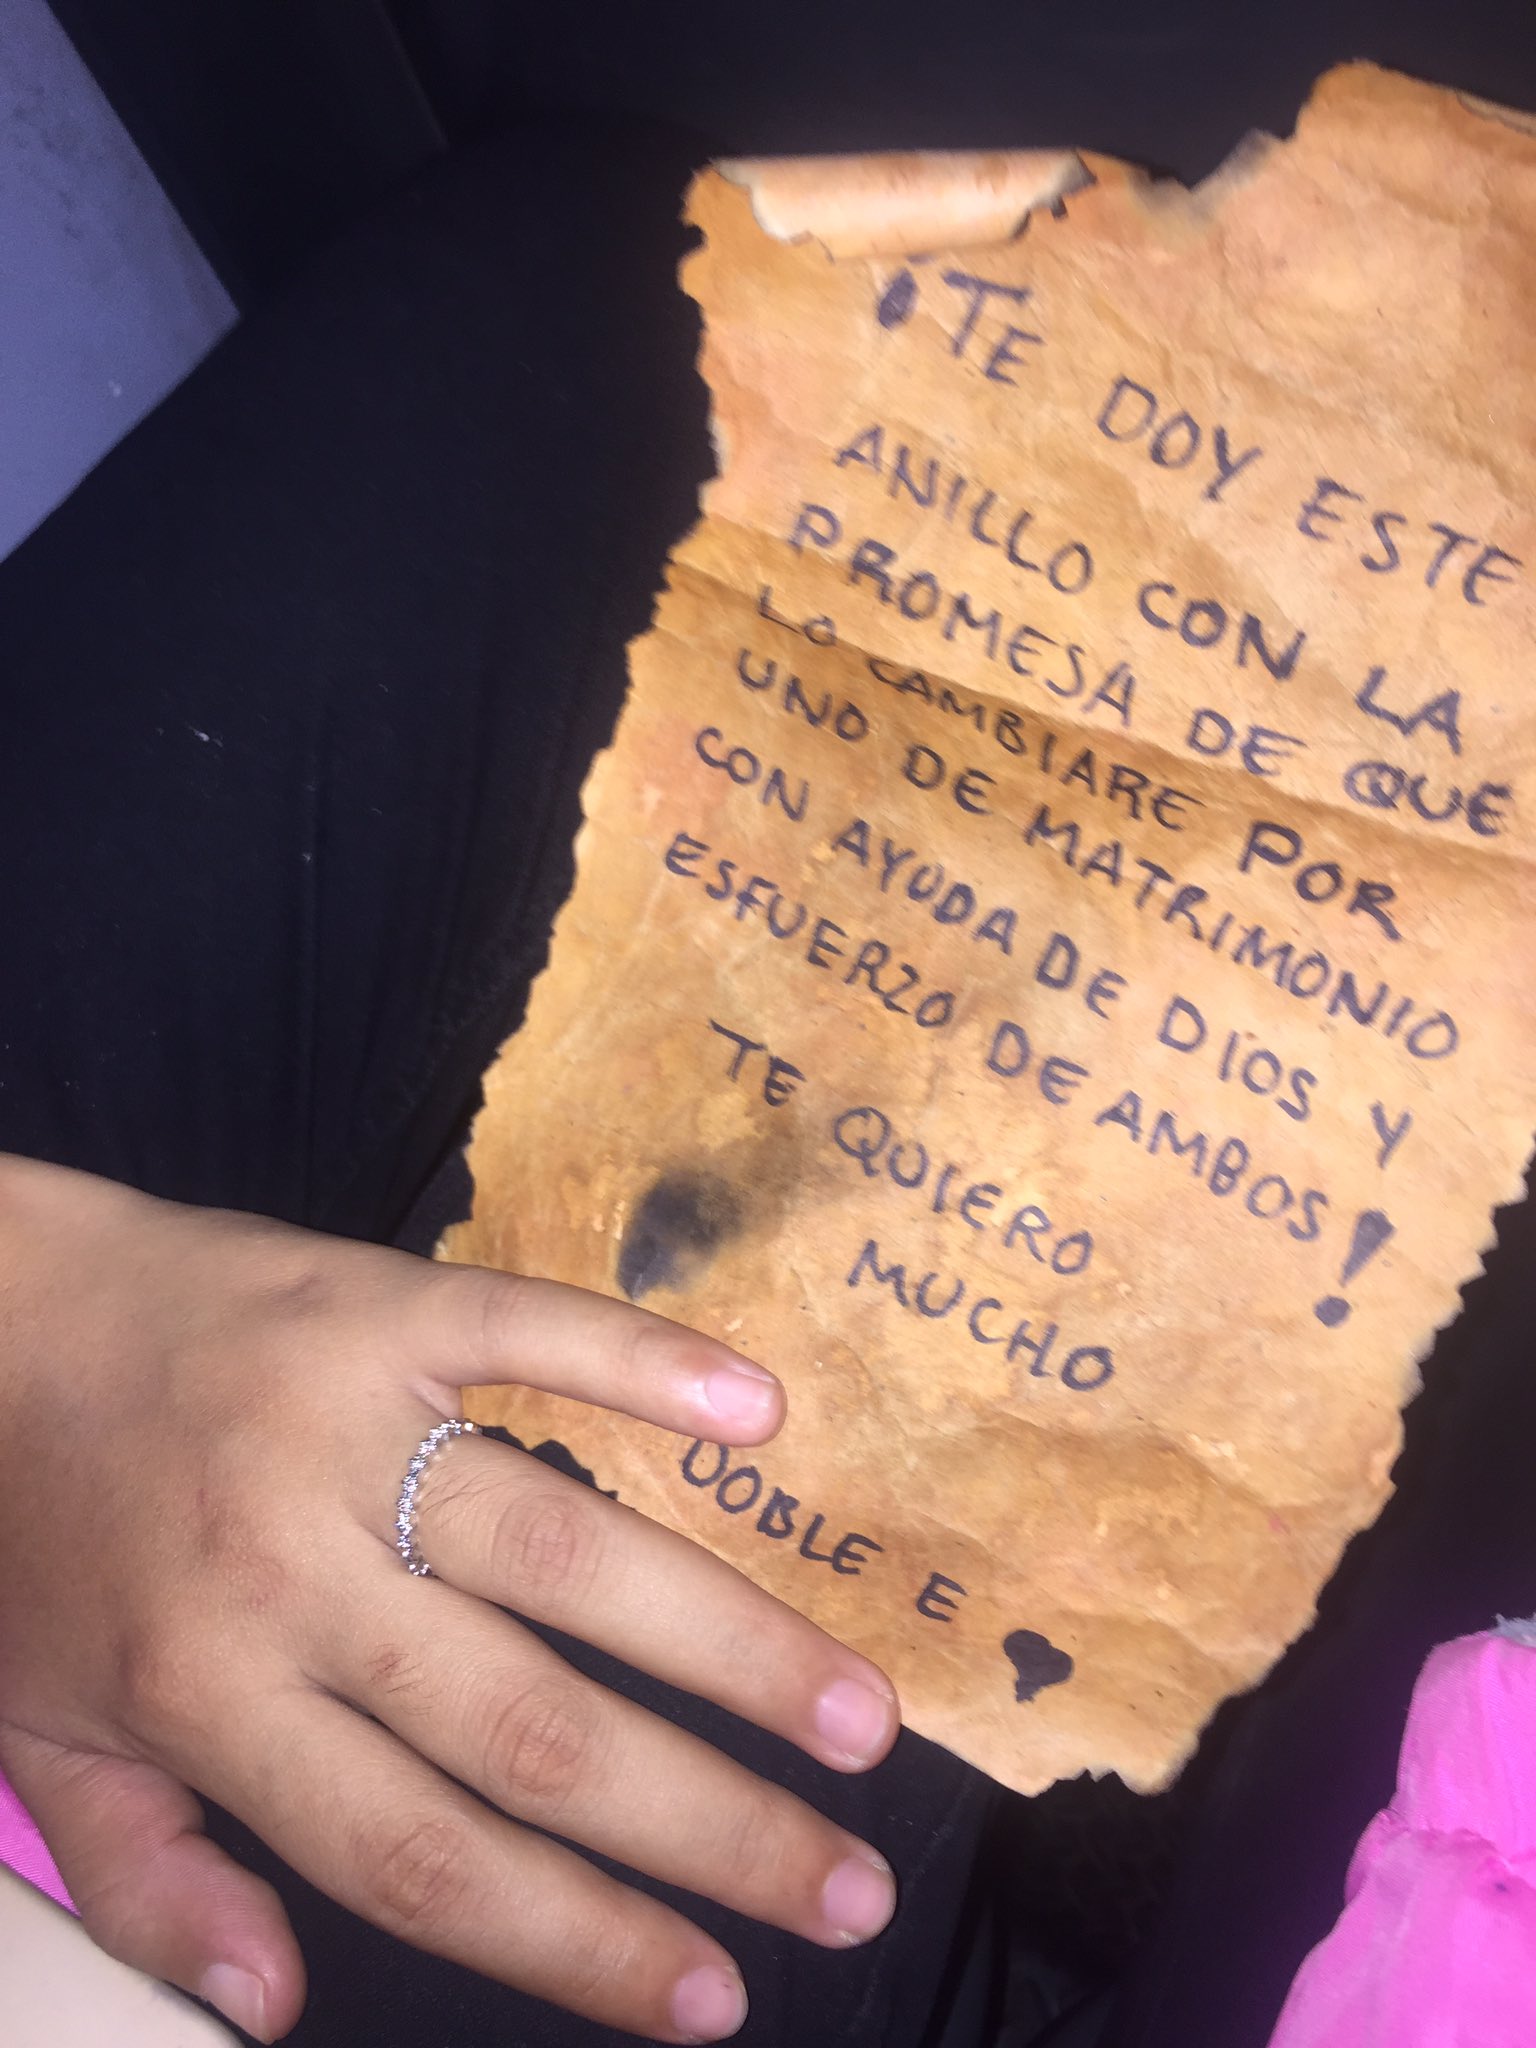 ¡TE DOY ESTE
ANILLO CON LA
PROMESA DE QUE
LO CAMBIARE POR
UNO DE MATRIMONIO
CON AYUDA DE DIOS Y
ESFUERZO DE AMBOS!
TE QUIERO
MUCHO
DOBLE E